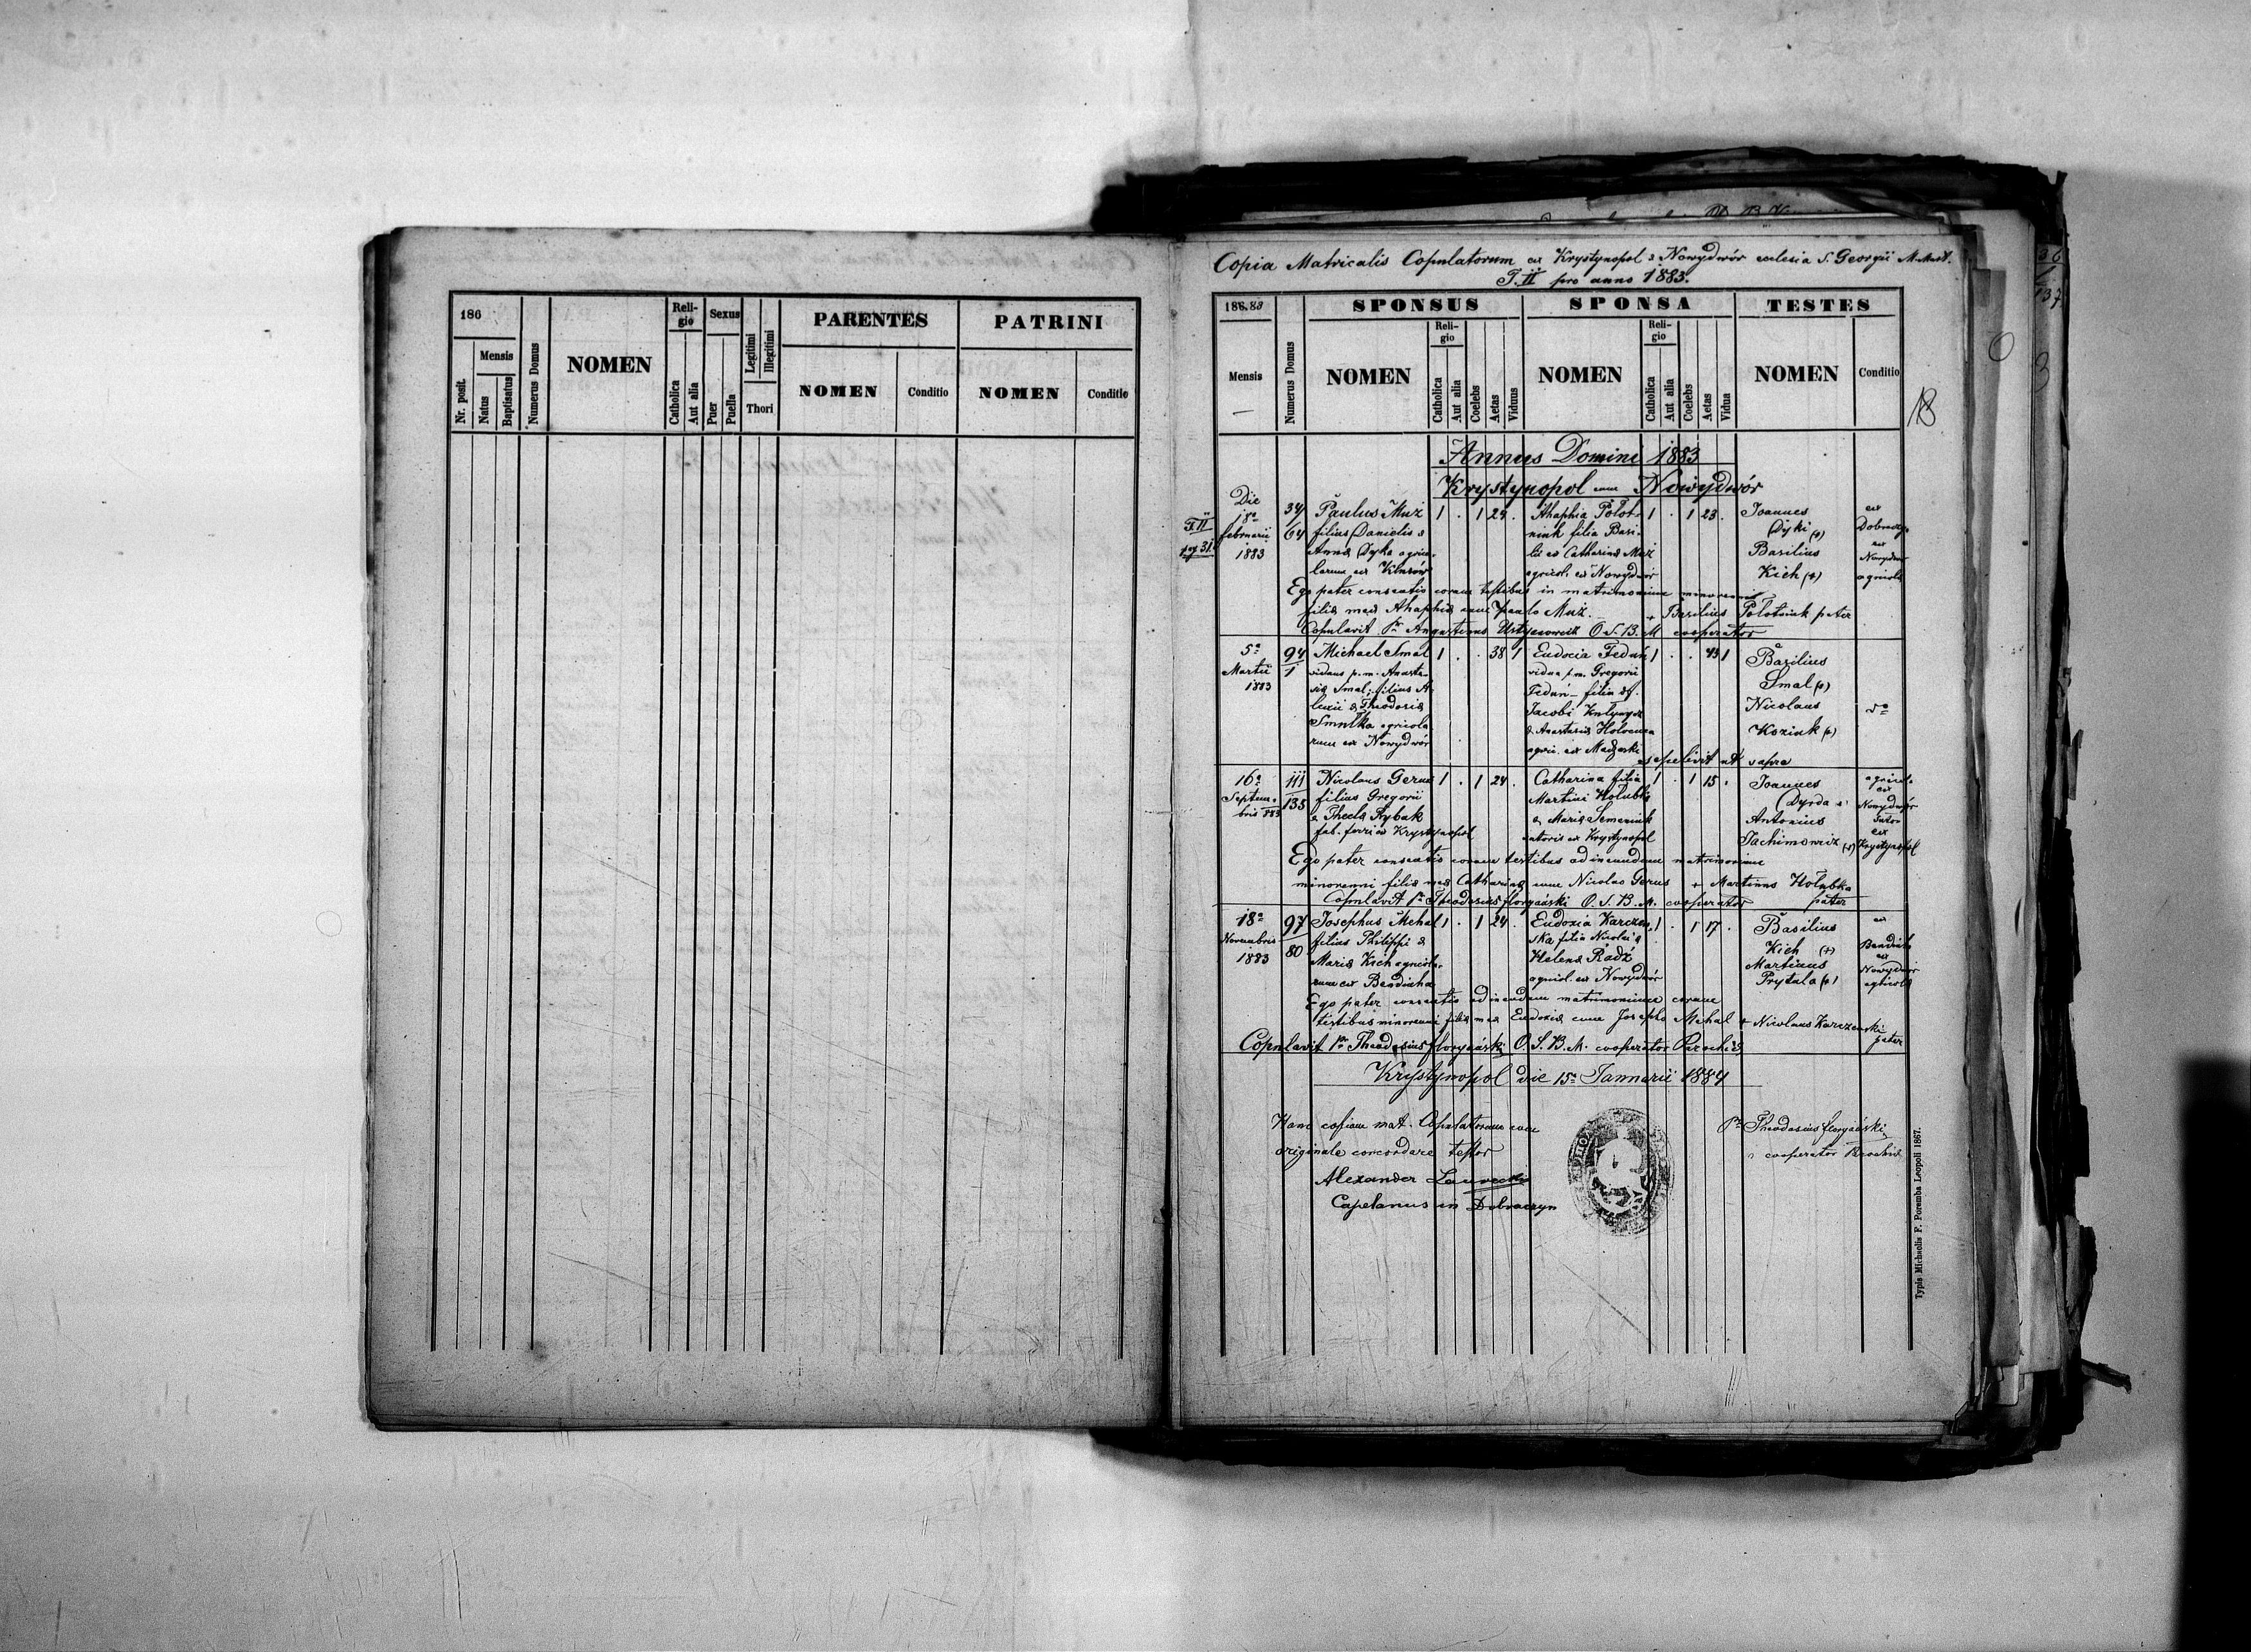 186
Nr. posit.
Mensis
Natus
Baptisatus
Numerus Domus
NOMEN
Religio
Catholica
Aut alia
Sexus
Puer
Puella
Legitimi
Illegitimi
Thori
PARENTES
NOMEN
Conditio
PATRINI
NOMEN
Conditio
Copia Matricalis Copulatorum ex Krystynopol & Nowydwór ecclesia S. Georgii M. Mart.
T. II pro anno 1883.
186.83
Mensis
Numerus Domus
SPONSUS
NOMEN
Religio
Catholica
Aut alia
Coelebs
Aetas
Viduus
SPONSA
NOMEN
Religio
Catholica
Aut alia
Coelebs
Aetas
Vidua
TESTES
NOMEN
Conditio
18
Annus Domini 1883
Krystynopol cum Nowydwór
T. II
pag 31.
Die
18a
februarii
1883
34
64
Paulus Muz
filius Danielis &
Anna Dyka agrico-
larum ex
1 . 1 29 .
Ahaphia Polot-
niuk filia Basi-
lii et Catharina Muz
agricol. ex Nowydwór
1 . 1 23 .
Joannes
Dyki (+)
Basilius
Kich (+)
ex
ex
Nowydwór
agricola
Ego pater consentio coram testibus in matrimonium minorennis
filia mea Ahaphia cum Paulo Muz. + Basilius Polotniuk pater
Copulavit Pr Augustinus O. S. B. M cooperator
5a
Martii
1883
94
1
Michael Smal
viduus p. m. Anasta-
sia Smal; filius A-
lexii & Theodosia
Smutka agricola
rum ex Nowydwór
1 . . 38 1
Eudocia Fedun
vidua p. m. Gregorii
Fedun - filia
Jacobi
& Anastasia
agric. ex
1 . . 43 1
Basilius
Smal (+)
Nicolaus
Koziak (+)
ut supra
16a
Septem-
bris 883
111
135
Nicolaus Gerus
filius Gregorii
& Thecla Rybak
fab. ferri ex Krystynopol
1 . 1 24 .
Catharina filia
Martini Holubka
& Maria Semeniuk
sutoris ex Krystynopol
1 . 1 15 .
Joannes
Dyrda &
Antonius
Jachimowicz (+)
agricola
ex
Nowydwór
Sutor
ex
Krystynopol
Ego pater consentio coram testibus ad ineundum matrimonium
minorenni filia mea Catharina cum Nicolao Gerus + Martinus Holubka
pater
Copulavit Pr Theodosius O. S. B. M. cooperator
18a
Novembris
1883
97
80
Josephus Mehal
filius Philippi &
Maria Kich agricola-
rum ex Bendiuha
1 . 1 24 .
Eudoxia Karczew
ska filia Nicolai &
Helena Radz
agricol. ex Nowydwór
1 . 1 17 .
Basilius
Kich (+)
Martinus
Prytula (+)
ex
Bendiuha
ex
Nowydwór
agricola
Ego pater consentio ad ineundum matrimonium coram
testibus minorenni filia mea Eudoxia cum Josepho Mehal + Nicolaus Karczewski
pater
Copulavit Pr Theodosius O. S. B. M. cooperator Parochiae
Krystynopol die 15a Januarii 1884
Hanc copiam mat. Copulatorum cum
originale concordare testor
Alexander
Capelanus in Dobraczyn
Pr Theodosius
cooperator
Typis Michaelis F. Poremba Leopoli 1867.